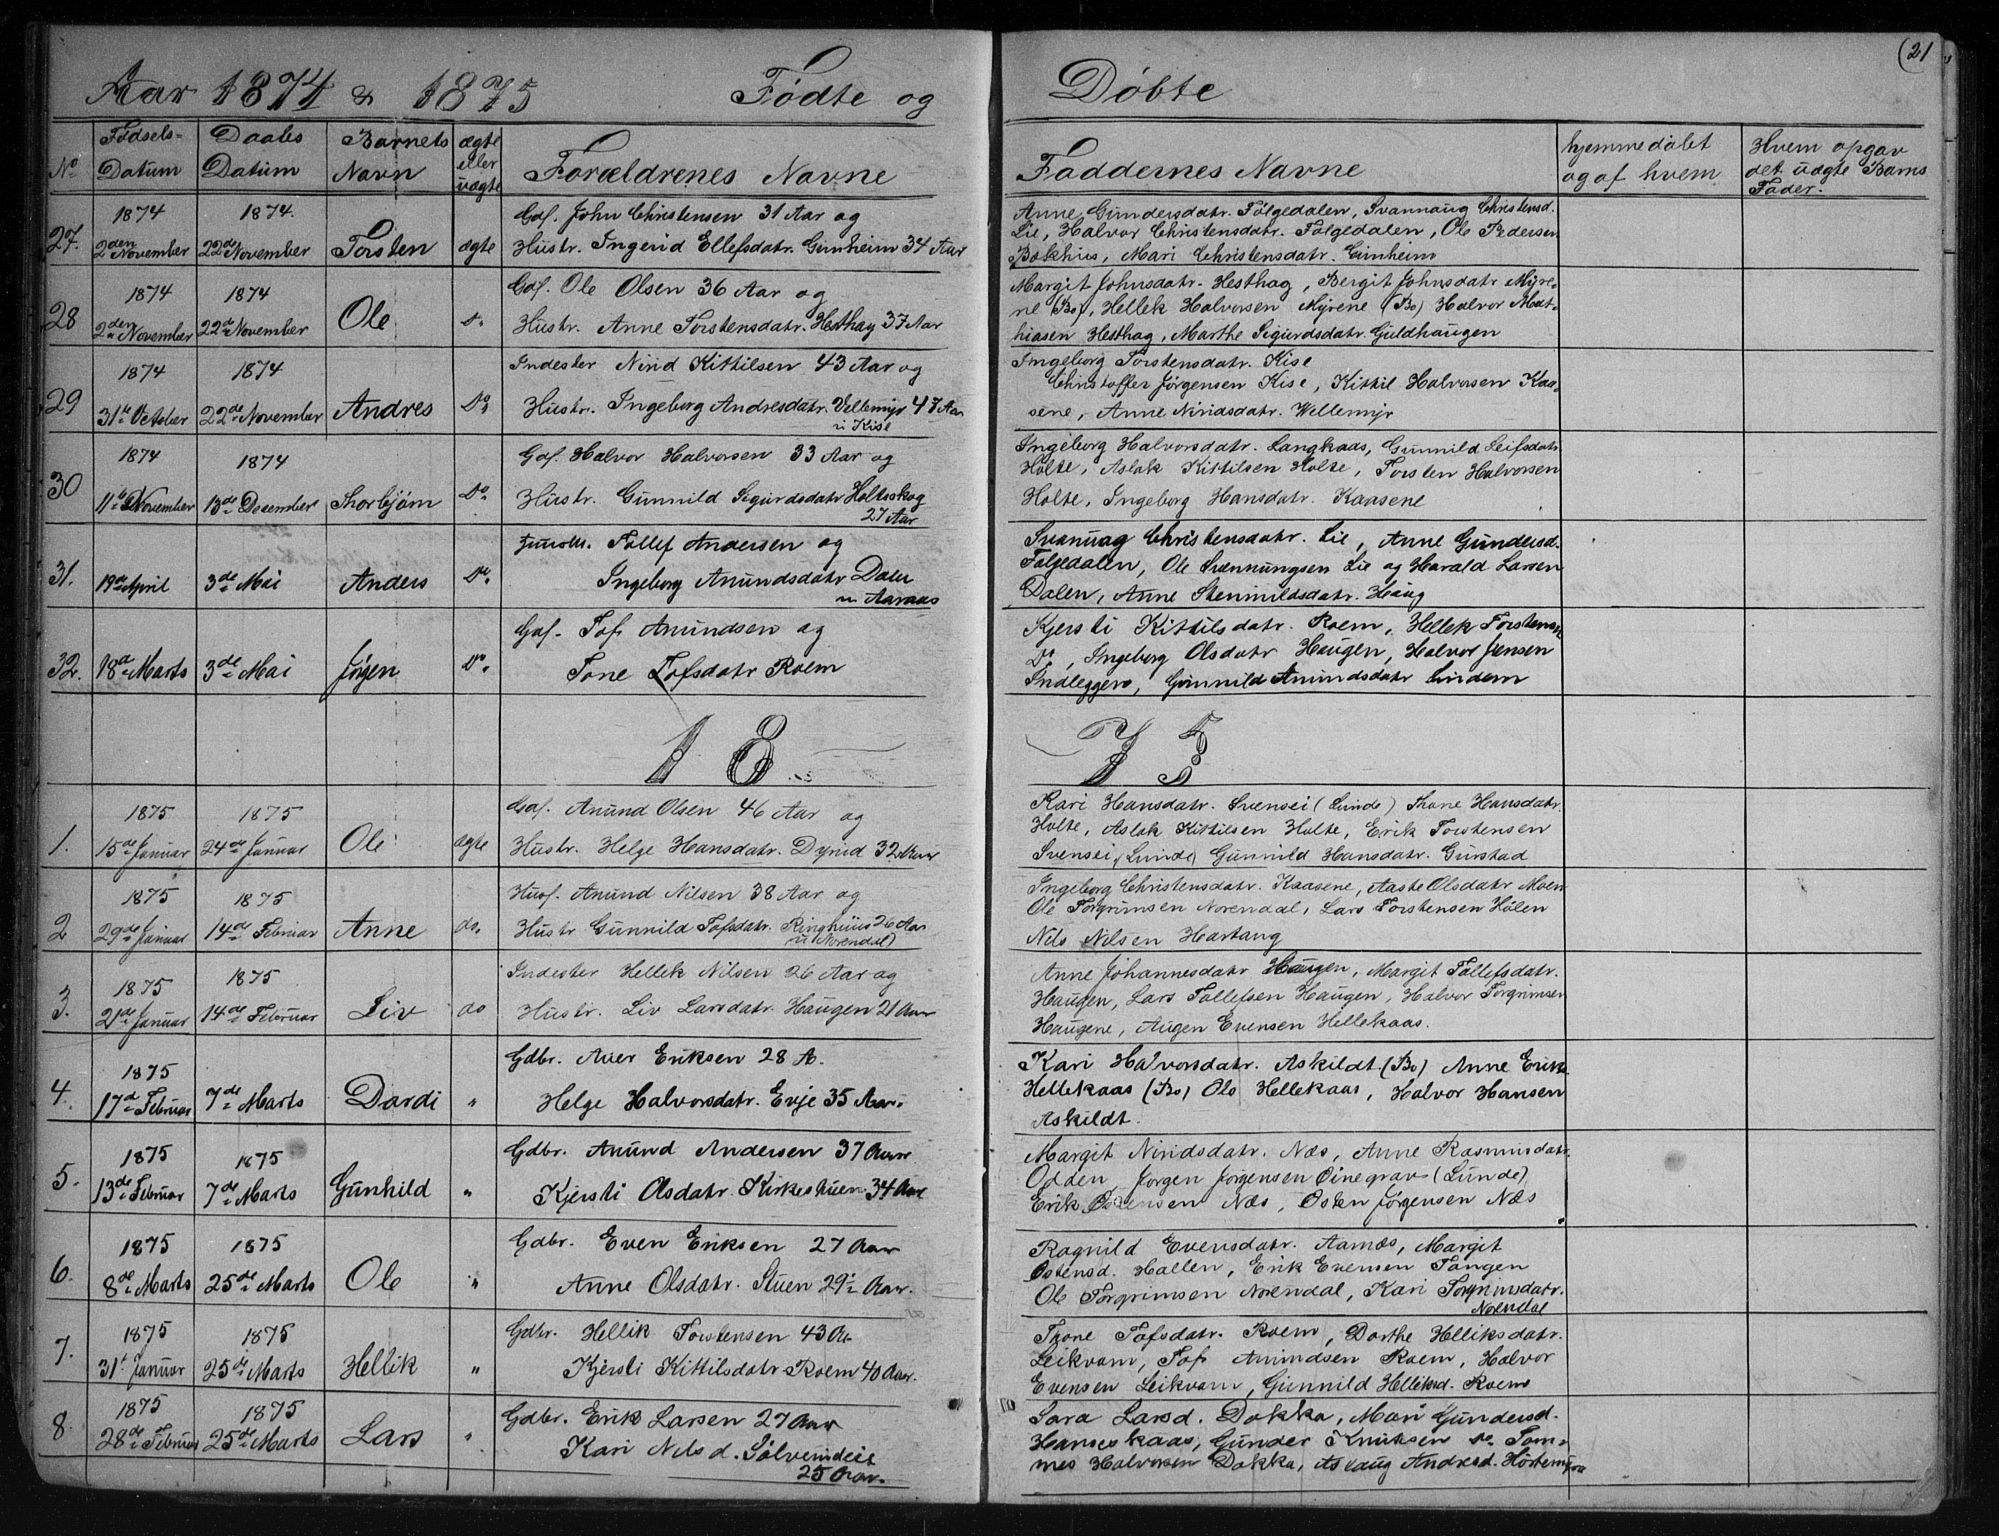 (21
Aar 1874 & 1875 Fødte og Døbte
No Fødsels-Datum Daabs Datum Barnets Navn ægte eller uægte Forældrenes Navne Faddernes Navne hjemmedøbt og af hvem Hvem opgav det uægte Barns Fader.
27. 1874 2den November 1874. 22de November Torsten ægte
Gaf. John Christensen 31 Aar og
Hustr. Ingerid Ellefsdatr. Gunheim 34 Aar
Anne Gundersdatr. Følgedalen, Svannaug Christensd.
Lie, Halvor Christensdatr. Følgedalen, Ole Pedersen
Bakhus, Mari Christensdatr. Gunheim
28 1874 2den November 1874 22de November Ole Do
Gaf. Ole Olsen 36 Aar og
Hustr. Anne Torstensdatr. Hesthag 37 Aar
Margit Johnsdatr. Hesthag, Bergit Johnsdatr Myre-
ne (Bø), Hellek Halvorsen Myrene (Bø) Halvor Mat-
hiasen Hesthag, Marthe Sigurdsdatr. Guldhaugen
29 1874 31te October 1874 22de November Andres Do
Indester Nirid Kittilsen 43 Aar og
Hustr. Ingeborg Andresdatr. Vellemyr 47 Aar
u Kise
Ingeborg Torstensdatr. Kise
Christoffer Jørgensen Kise, Kittil Halvorsen Kaa-
sene, Anne Niridsdatr. Wellemyr
30 1874 11te November 1874 13de Desember Thorbjørn Do
Gaf. Halvor Halvorsen 33 Aar og
Hustr. Gunnild Sigurdsdatr Holtsskog
27 Aar
Ingeborg Halvorsdatr. Langkaas, Gunnild Leifsdatr
Holte, Aslak Kittilsen Holte, Torsten Halvorsen
Holte, Ingeborg Hansdatr. Kaasene
31. 19de April 3de Mai Anders Do
Tollef Andersen og
Ingeborg Anundsdatr Dalen
u Aaraas
Svanuag Christensdatr. Lie, Anne Gundersd.
Følgedalen, Ole Svennungsen Lie og Harald Larsen
Dalen, Anne Stennildsdatr. Haug
32. 18de Marts 3de Mai Jørgen Do
Gaf. Tof Anundsen og
Tone Tofsdatr Roem
Kjersti Kittilsdatr. Roem, Hellek Torstensen
Do, Ingeborg Olsdatr Haugen, Halvor Jensen
Indleggen, Gunnild Anundsdatr Lindem
18 75
1. 1875 15de Januar 1875 24de Januar Ole ægte
Gaf. Anund Olsen 46 Aar og
Hustr. Helge Hansdatr. Dynid 32 Aar
Kari Hansdatr. Svensei (Lunde) Thone Hansdatr.
Holte, Aslak Kittilsen Holte, Erik Torstensen
Svensei (Lunde) Gunnild Hansdatr. Gurstad
2 1875 29de Januar 1875 14de Februar Anne do.
Husf. Anund Nilsen 38 Aar og
Hustr Gunnild Tofsdatr. Ringhuus 26 Aar
u Norendal)
Ingeborg Christensdatr. Kaasene, Aaste Olsdatr Moen
Ole Torgrimsen Norendal, Lars Torstensen Holen
Nils Nilsen Hartang
3. 1875 21de Januar 1875 14de Februar Liv do
Indester Hellek Nilsen 26 Aar og
Hustr. Liv Larsdatr. Haugen 21 Aar
Anne Johannesdatr Haugen, Margit Tollefsdatr.
Haugen, Lars Tollefsen Haugen, Halvor Torgrimsen
Haugene, Augen Evensen Hellekaas.
4. 1875 17d Februar 7de Marts Dordi "
Gdbr. Aver Eriksen 28 A.
Helge Halvorsdatr. Evje 35 Aar.
Kari Halvorsdatr. Askildt (Bø) Anne Eriks
Hellekaas (Bø) Ole Hellekaas, Halvor Hansen
Askildt.
5. 1875 13de Februar 1875 7de Marts Gunhild "
Gdbr. Anund Andersen 37 Aar
Kjersti Olsdatr. Kirkestuen 34 Aar
Margit Niridsdatr. Næs, Anne Rasmusdatr
Odden, Jørgen Jørgensen Øinegrav (Lunde)
Erik Østensen Næs, Østen Jørgensen Næs
6. 1875 8de Marts 1875 25de Marts Ole "
Gdbr. Even Eriksen 27 Aar
Anne Olsdatr. Stuen 29 Aar.
Ragnild Evensdatr. Aarnæs, Margit
Østensd. Hallen, Erik Evensen Tangen
Ole Torgrimsen Norendal, Kari Torgrimsdatr.
Norendal
7. 1875 31t Januar 1875 25de Marts Hellik "
Gdbr. Hellik Torstensen 43 Aa
Kjersti Kittilsdatr Roem 40 Aar.
Thone Tofsdatr. Roem, Dorthe Helliksdatr.
Leikvam, Tof Anundsen Roem, Halvor
Evensen Leikvam, Gunnild Helliksd. Roem
8. 1875 28de Februar 1875 25de Marts Lars "
Gdbr. Erik Larsen 27 Aar
Kari Nilsd. Sølverudeie
25 Aar.
Sara Larsd. Dokka, Mari Gundersd.
Hanseskaas, Gunder Knutsen Do. Tom-
mes Halvorsen Dokka, Aslaug Andresd.